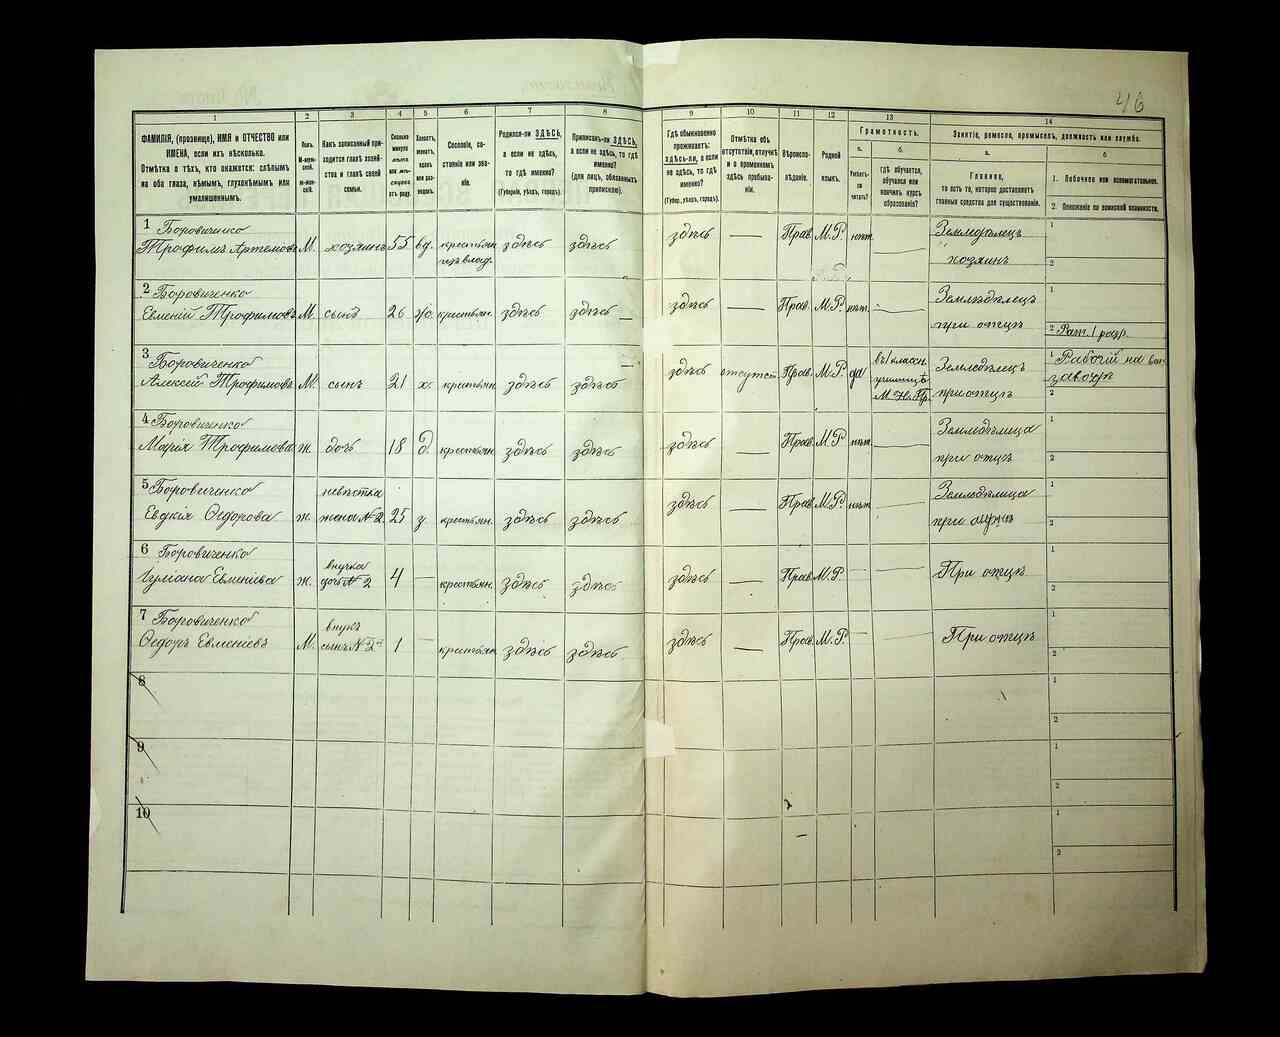 46
1
2
3
4
5
6
7
8
9
10
11
12
13
14
ФАМИЛІЯ, (прозвище), ИМЯ и ОТЧЕСТВО или
ИМЕНА, если ихъ нѣсколько.
Отмѣтка о тѣхъ, кто окажется: слѣпымъ
на оба глаза, нѣмымъ, глухонѣмымъ или
умалишеннымъ.
Полъ.
М-муж-
ской.
Ж-жен-
скій.
Какъ записанный при-
ходится главѣ хозяй-
ства и главѣ своей
семьи.
Сколько
минуло
лѣтъ
отъ роду.
Холостъ,
женатъ,
вдовъ
или раз-
веденъ.
Сословіе, со-
стояніе или зва-
ніе.
Родился-ли ЗДѢСЬ,
а если не здѣсь,
то гдѣ именно?
(Губернія, уѣздъ, городъ).
Приписанъ-ли ЗДѢСЬ,
а если не здѣсь, то гдѣ
именно?
(для лицъ, обязанныхъ
припискою).
Гдѣ обыкновенно
проживаетъ:
здѣсь-ли, а если
не здѣсь, то гдѣ
именно?
(Губер., уѣздъ, городъ).
Отмѣтка объ
отсутствіи, отлучкѣ
и о временномъ
здѣсь пребыва-
ніи.
Вѣроиспо-
вѣданіе.
Родной
языкъ.
Грамотность.
а.
Умѣетъ-
ли
читать?
б.
гдѣ обучается,
обучался или
кончилъ курсъ
образованія?
Занятіе, ремесло, промыселъ, должность или служба.
а.
Главное,
то есть то, которое доставляетъ
главныя средства для существованія.
б
1. Побочное или вспомогательное.
2. Положеніе по воинской повинности.
1 Боровиченко
Трофимъ Артемовъ М. хозяинъ 55 вд. крестьян. здѣсь здѣсь здѣсь — Прав. М.Р. нѣт — Земледѣлецъ
хозяинъ
1
2
2 Боровиченко
Евмений Трофимовъ М. сынъ 26 ж. крестьян. здѣсь здѣсь здѣсь — Прав. М.Р. нѣт — Земледѣлецъ
при отцѣ
1
2 Рат. 1 разр.
3 Боровиченко
Алексей Трофимовъ М. сынъ 21 х. крестьян. здѣсь здѣсь здѣсь отсутст. Прав. М.Р. да въ 1 классн.
училищѣ
М. Н. Пр.
Земледѣлецъ
при отцѣ
1 Рабочій на
заводѣ
2
4 Боровиченко
Марія Трофимова ж. дочь 18 д. крестьян. здѣсь здѣсь здѣсь — Прав. М.Р. нѣт — Земледѣлица
при отцѣ
1
2
5 Боровиченко
Евдкія Ѳедорова ж. невѣстка
жена №2 25 з. крестьян. здѣсь здѣсь здѣсь — Прав. М.Р. нѣт — Земледѣлица
при
1
2
6 Боровиченко
Евменіева ж. внучка
дочь №2 4 — крестьян. здѣсь здѣсь здѣсь — Прав. М.Р. — — При отцѣ
1
2
7 Боровиченко
Ѳедоръ Евменіевъ М. внукъ
сынъ №2 1 — крестьян. здѣсь здѣсь здѣсь — Прав. М.Р. — — При отцѣ
1
2
8
1
2
9
1
2
10
1
2